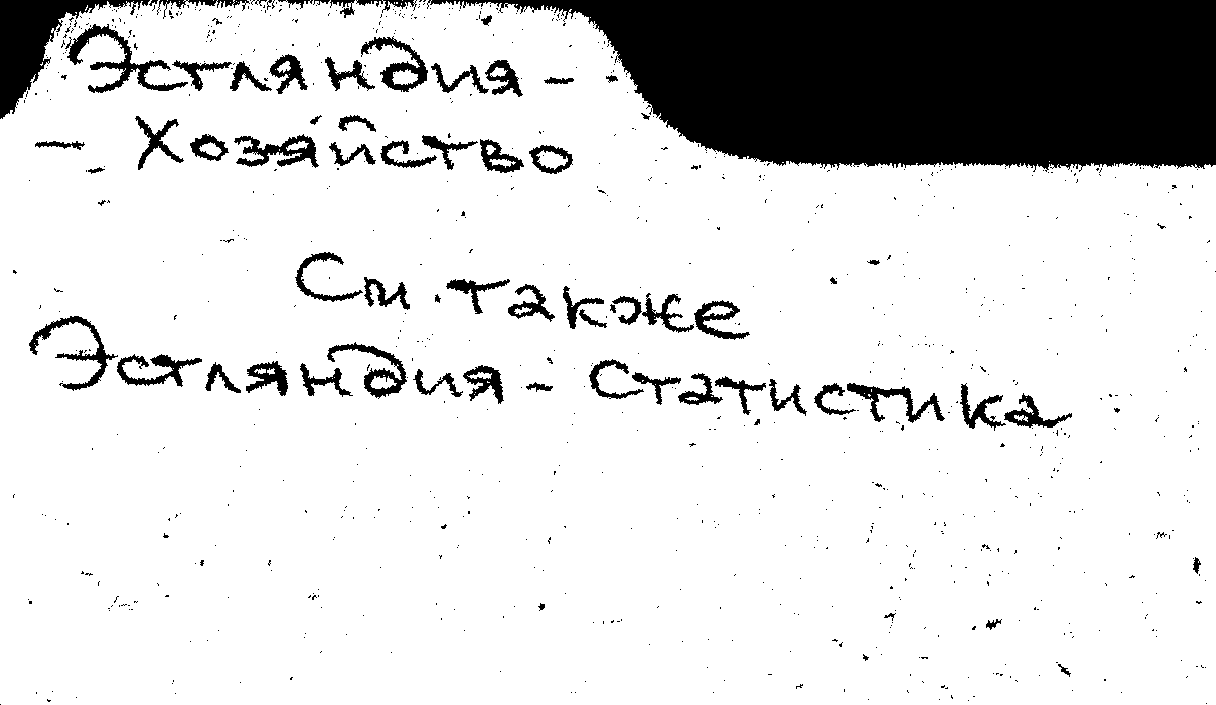 Эстляндия -
- Хозяйство
См. также
Эстляндия - Статистика